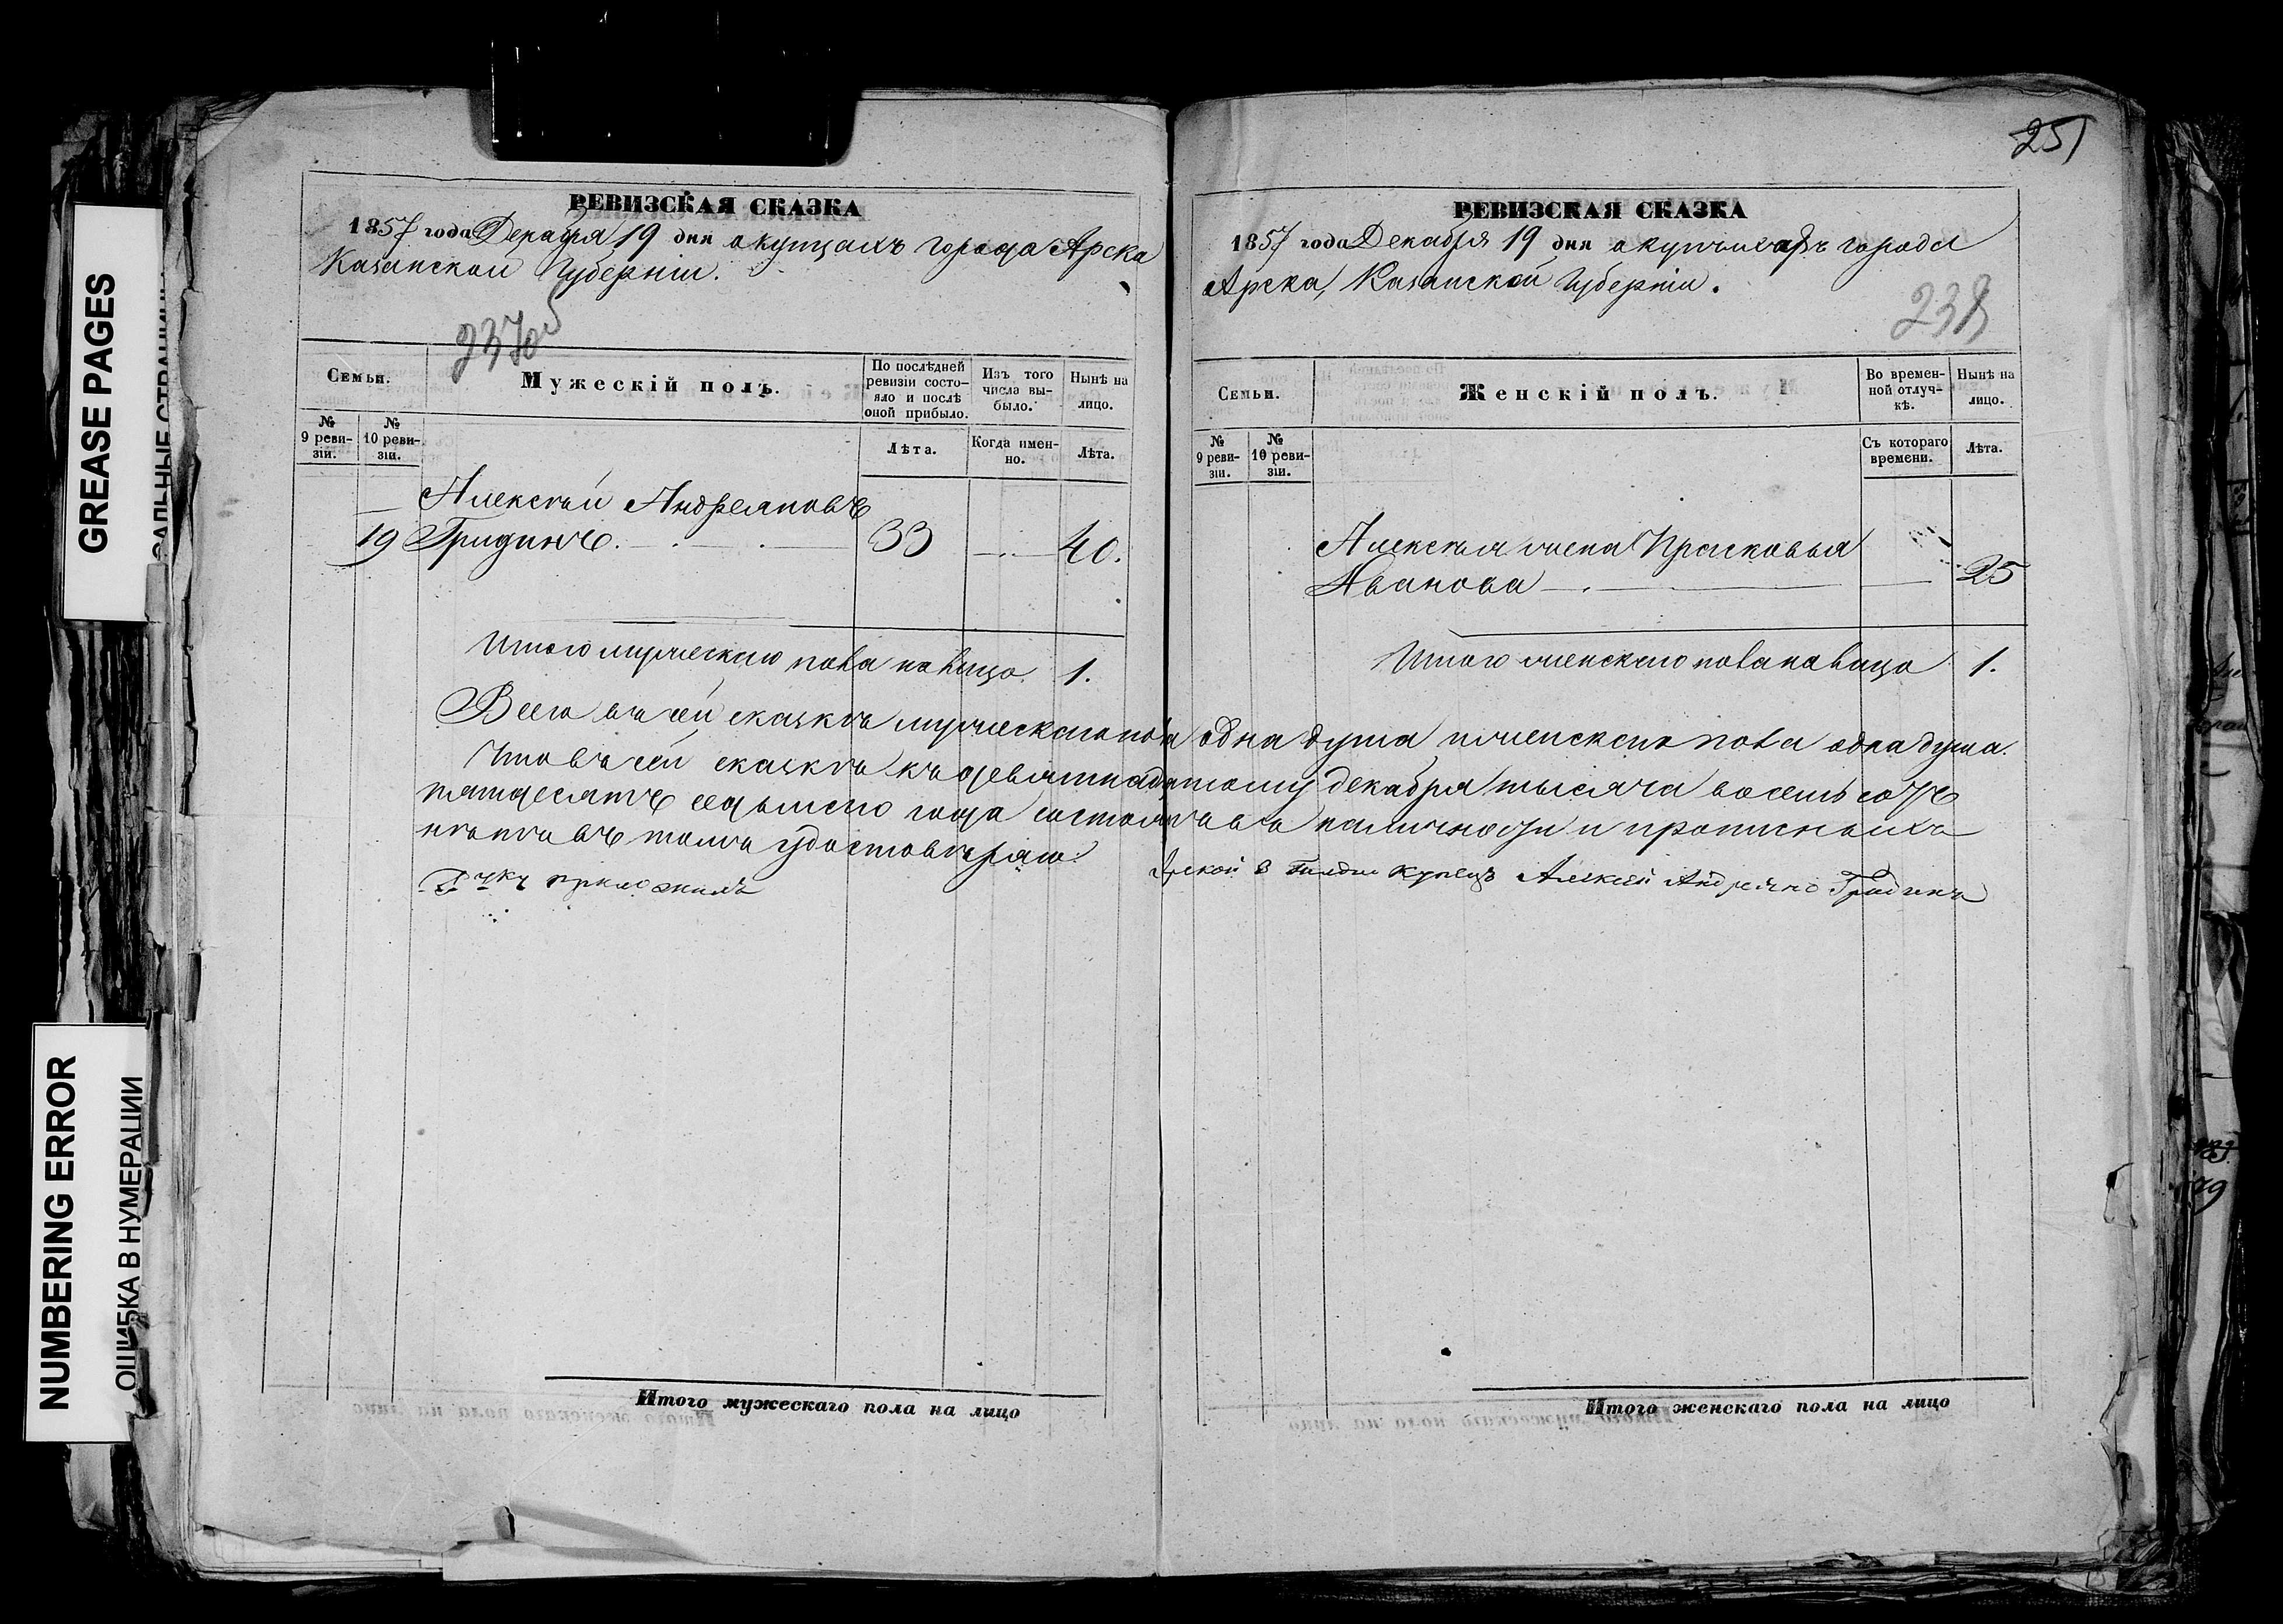 GREASE PAGES
NUMBERING ERROR
ОШИБКА В НУМЕРАЦИИ
РЕВИЗСКАЯ СКАЗКА
1857 года Декабря 19 дня о купцахъ города Арска
Казанской Губерніи.
237об
Семьи.
Мужескій полъ.
По послѣдней ревизіи состояло и послѣ оной прибыло.
Изъ того числа выбыло.
Нынѣ на лицо.
№ 9 ревизіи.
№ 10 ревизіи.
Лѣта.
Когда именно.
Лѣта.
Алексѣй Андреяновъ
19 Гридинъ. 33 40.
Итого мужескаго пола на лицо 1.
251
РЕВИЗСКАЯ СКАЗКА
1857 года Декабря 19 дня о купчихахъ города
Арска, Казанской Губерніи.
238
Семьи.
Женскій полъ.
Во временной отлучкѣ.
Нынѣ на лицо.
№ 9 ревизіи.
№ 10 ревизіи.
Съ котораго времени.
Лѣта.
Алексѣя жена Прасковья
Иванова 25
Итого женскаго пола на лицо 1.
Всего въ сей сказкѣ мужескаго пола одна душа и женскаго пола одна душа.
Что въ сей сказкѣ къ девятнадцатому декабря тысяча восемь сотъ
пятдесятъ седьмаго года состоятъ въ наличности и прописныхъ
нѣтъ въ томъ удостовѣряю.
приложилъ
Арской 3 Гилдии купецъ Алексей Андреянов Гридинъ
Итого мужескаго пола на лицо
Итого женскаго пола на лицо